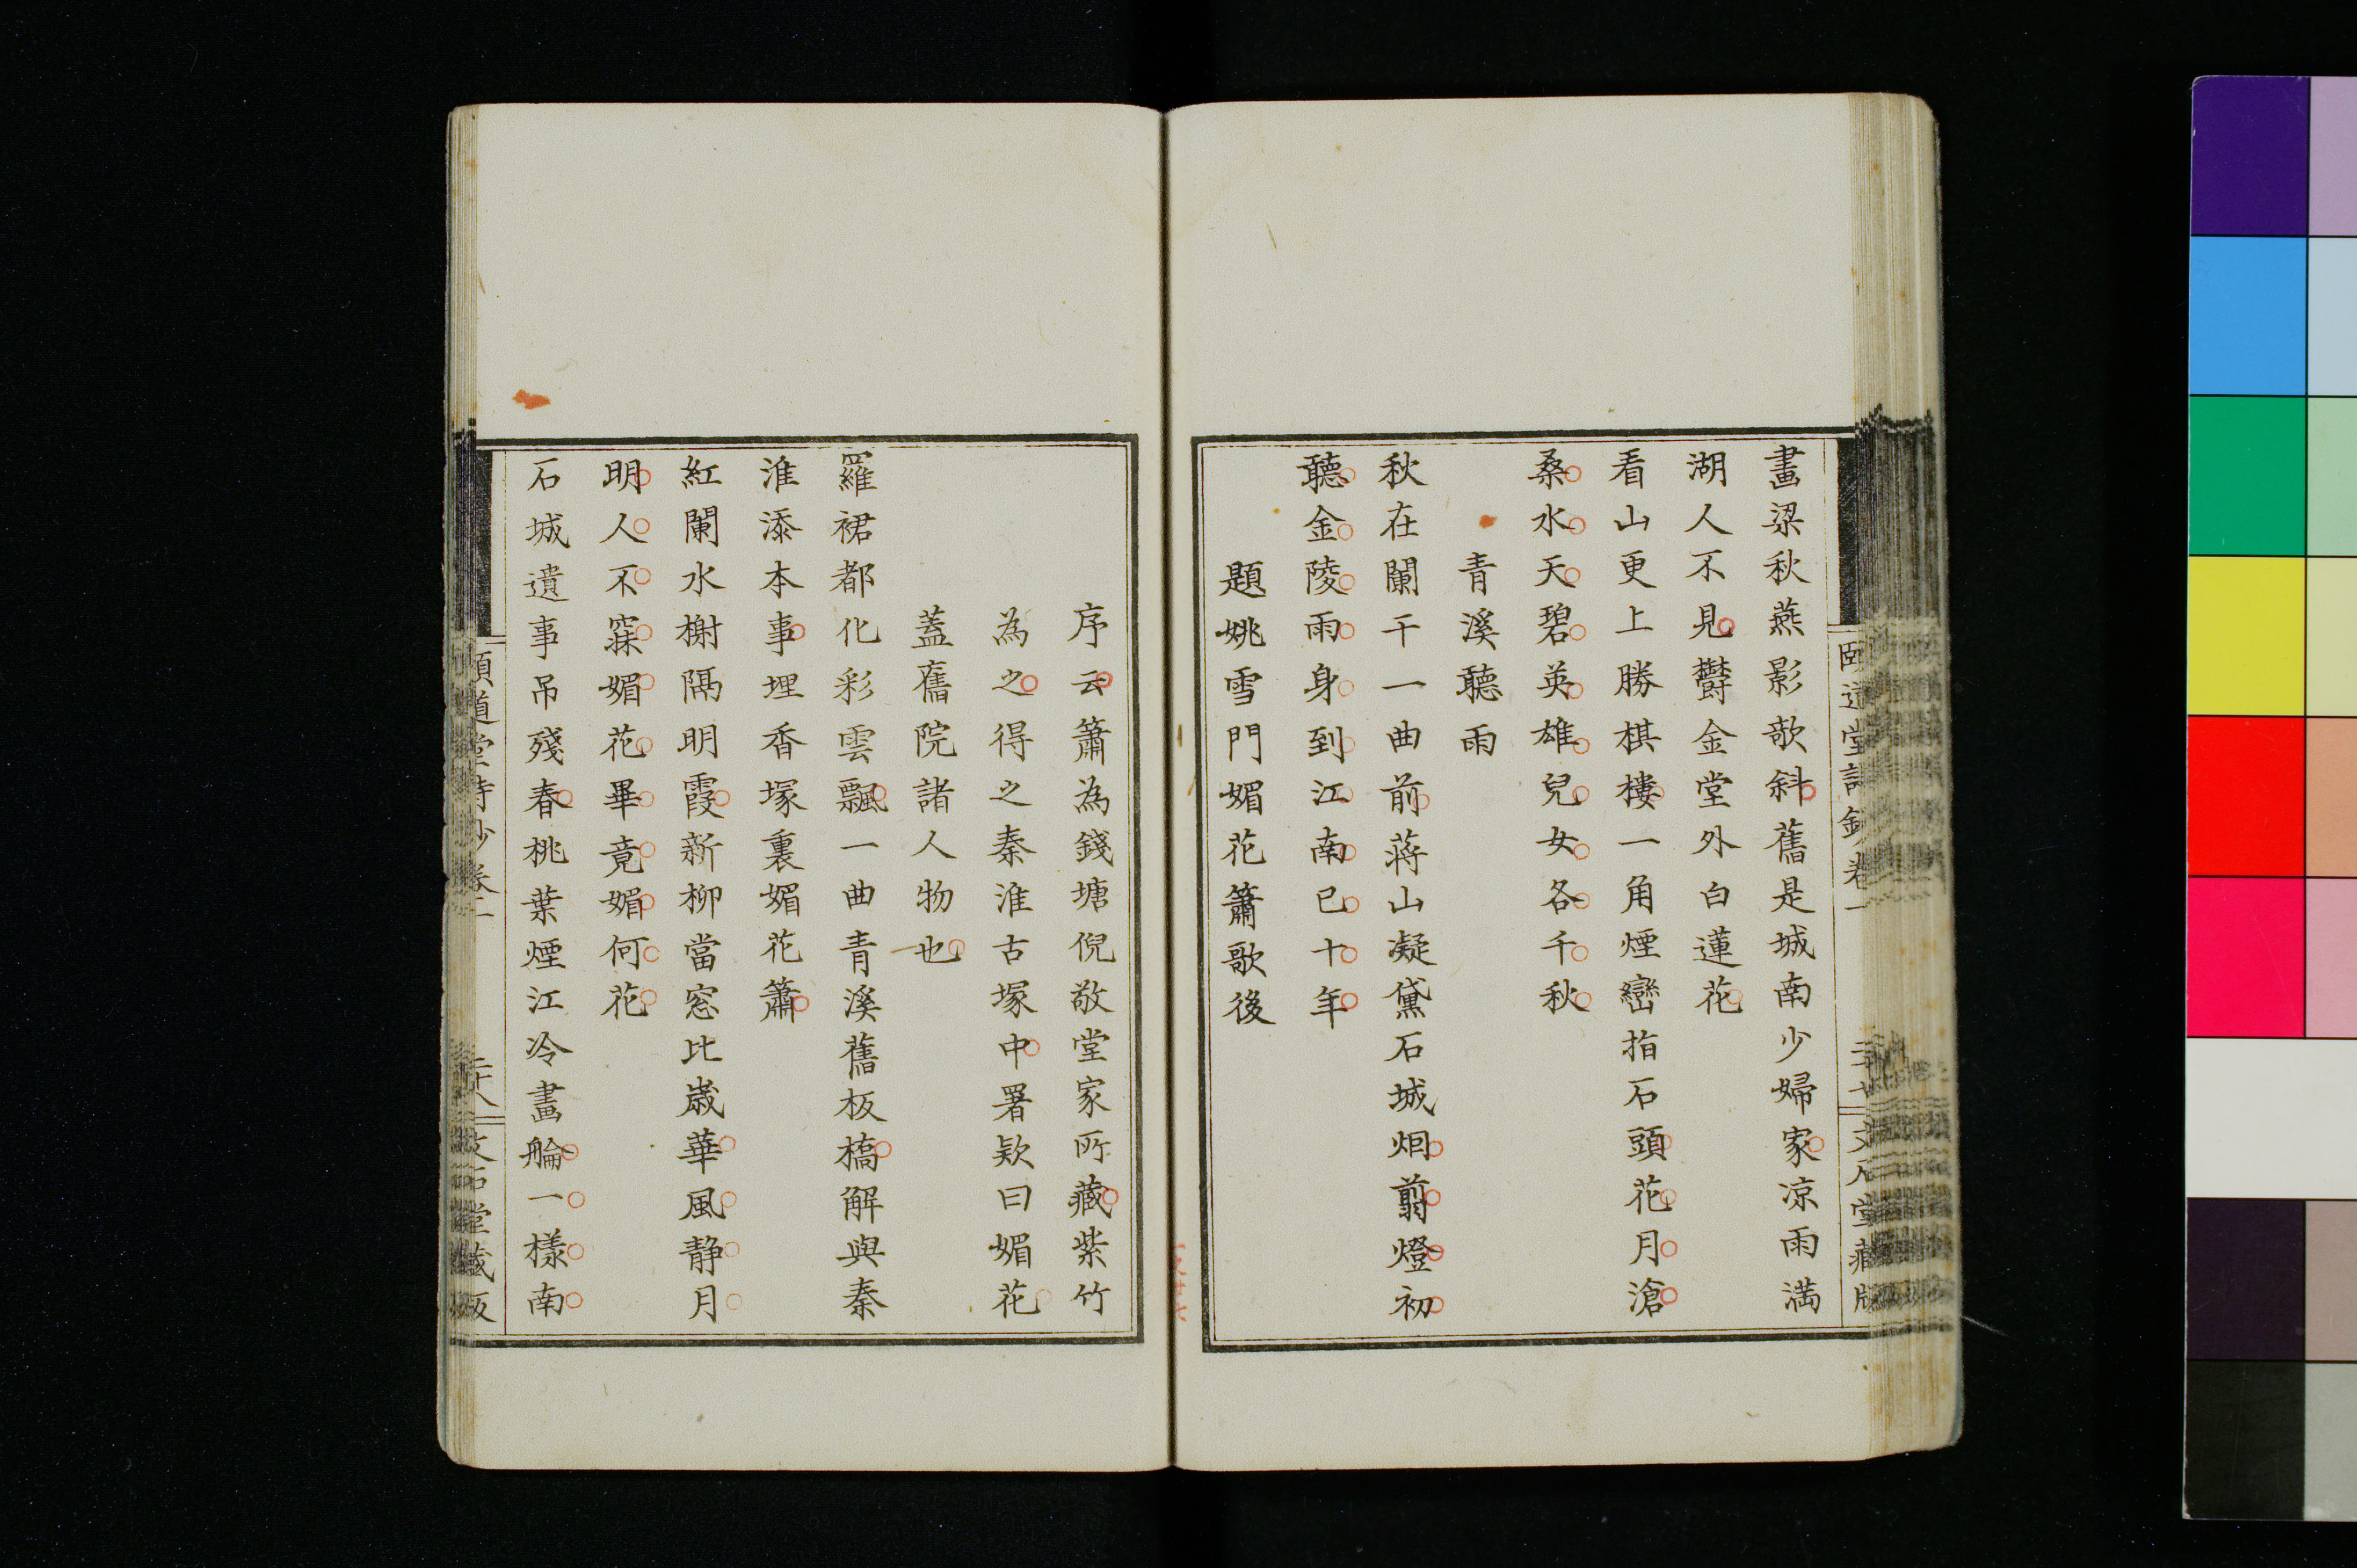 畫梁秋燕影歌斜舊是城南少婦家凉雨滿
湖人不見欝金堂外白蓮花
看山更上勝棋樓一角煙巒指石頭花月滄
桑水天碧英雄兒女各千秋
青溪聽雨
秋在闌干一曲前蔣山凝黛石城烟翦燈初
聽金陵雨身到江南已十年
題姚雪門媚花簫歌後
序云簫為錢塘倪敬堂家所藏紫竹
為之得之秦淮古塚中署欵曰媚花
蓋舊院諸人物也
羅裙都化彩雲飄一曲青溪舊板橋解與秦
淮添本事埋香塚裏媚花簫
紅闌水榭隔明霞新柳當窓比歲華風静月
明人不寐媚花畢竟媚何花
石城遺事吊殘春桃葉煙江冷畫艙一樣南
頤道堂詩鈔卷二
二十八
文石堂藏板